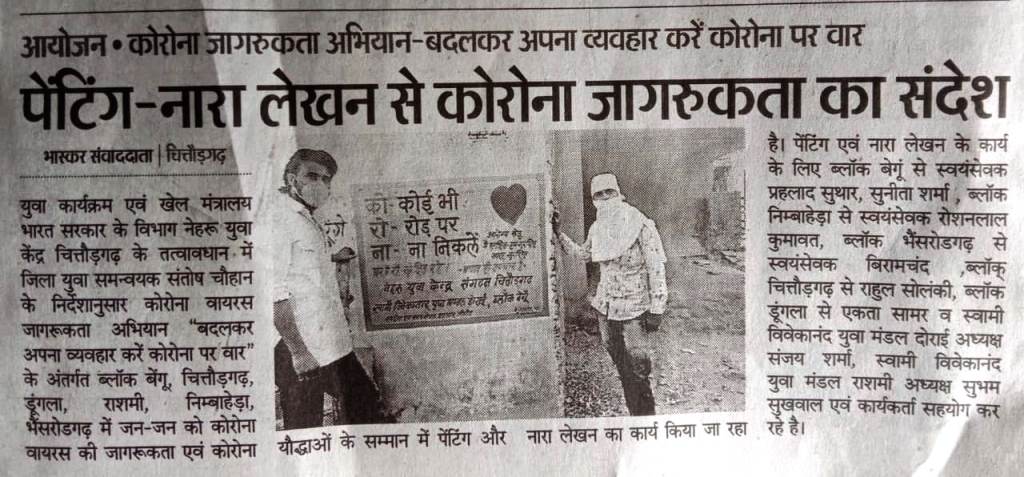 आयोजन • कोरोना जागरुकता अभियान-बदलकर अपना व्यवहार करें कोरोना पर वार
पेंटिंग-नारा लेखन से कोरोना जागरुकता का संदेश
भास्कर संवाददाता | चित्तौड़गढ़
युवा कार्यक्रम एवं खेल मंत्रालय
भारत सरकार के विभाग नेहरू युवा
केंद्र चित्तौड़गढ़ के तत्वावधान में
जिला युवा समन्वयक संतोष चौहान
के निर्देशानुसार कोरोना वायरस
जागरूकता अभियान "बदलकर
अपना व्यवहार करें कोरोना पर वार"
के अंतर्गत ब्लॉक बेंगू, चित्तौड़गढ़,
डूंगला, राशमी, निम्बाहेड़ा,
भैंसरोडगढ़ में जन-जन को कोरोना
वायरस की जागरूकता एवं कोरोना
को- कोई भी
रो- रोड़ पर
ना- ना निकलें
नेहरू युवा केन्द्र संगठन चित्तौड़गढ़
यौद्धाओं के सम्मान में पेंटिंग और
नारा लेखन का कार्य किया जा रहा
है। पेंटिंग एवं नारा लेखन के कार्य
के लिए ब्लॉक बेगूं से स्वयंसेवक
प्रहलाद सुथार, सुनीता शर्मा , ब्लॉक
निम्बाहेड़ा से स्वयंसेवक रोशनलाल
कुमावत, ब्लॉक भैंसरोडगढ़ से
स्वयंसेवक बिरामचंद ,ब्लॉक
चित्तौड़गढ़ से राहुल सोलंकी, ब्लॉक
डूंगला से एकता सामर व स्वामी
विवेकानंद युवा मंडल दोराई अध्यक्ष
संजय शर्मा, स्वामी विवेकानंद
युवा मंडल राशमी अध्यक्ष सुभम
सुखवाल एवं कार्यकर्ता सहयोग कर
रहे है।